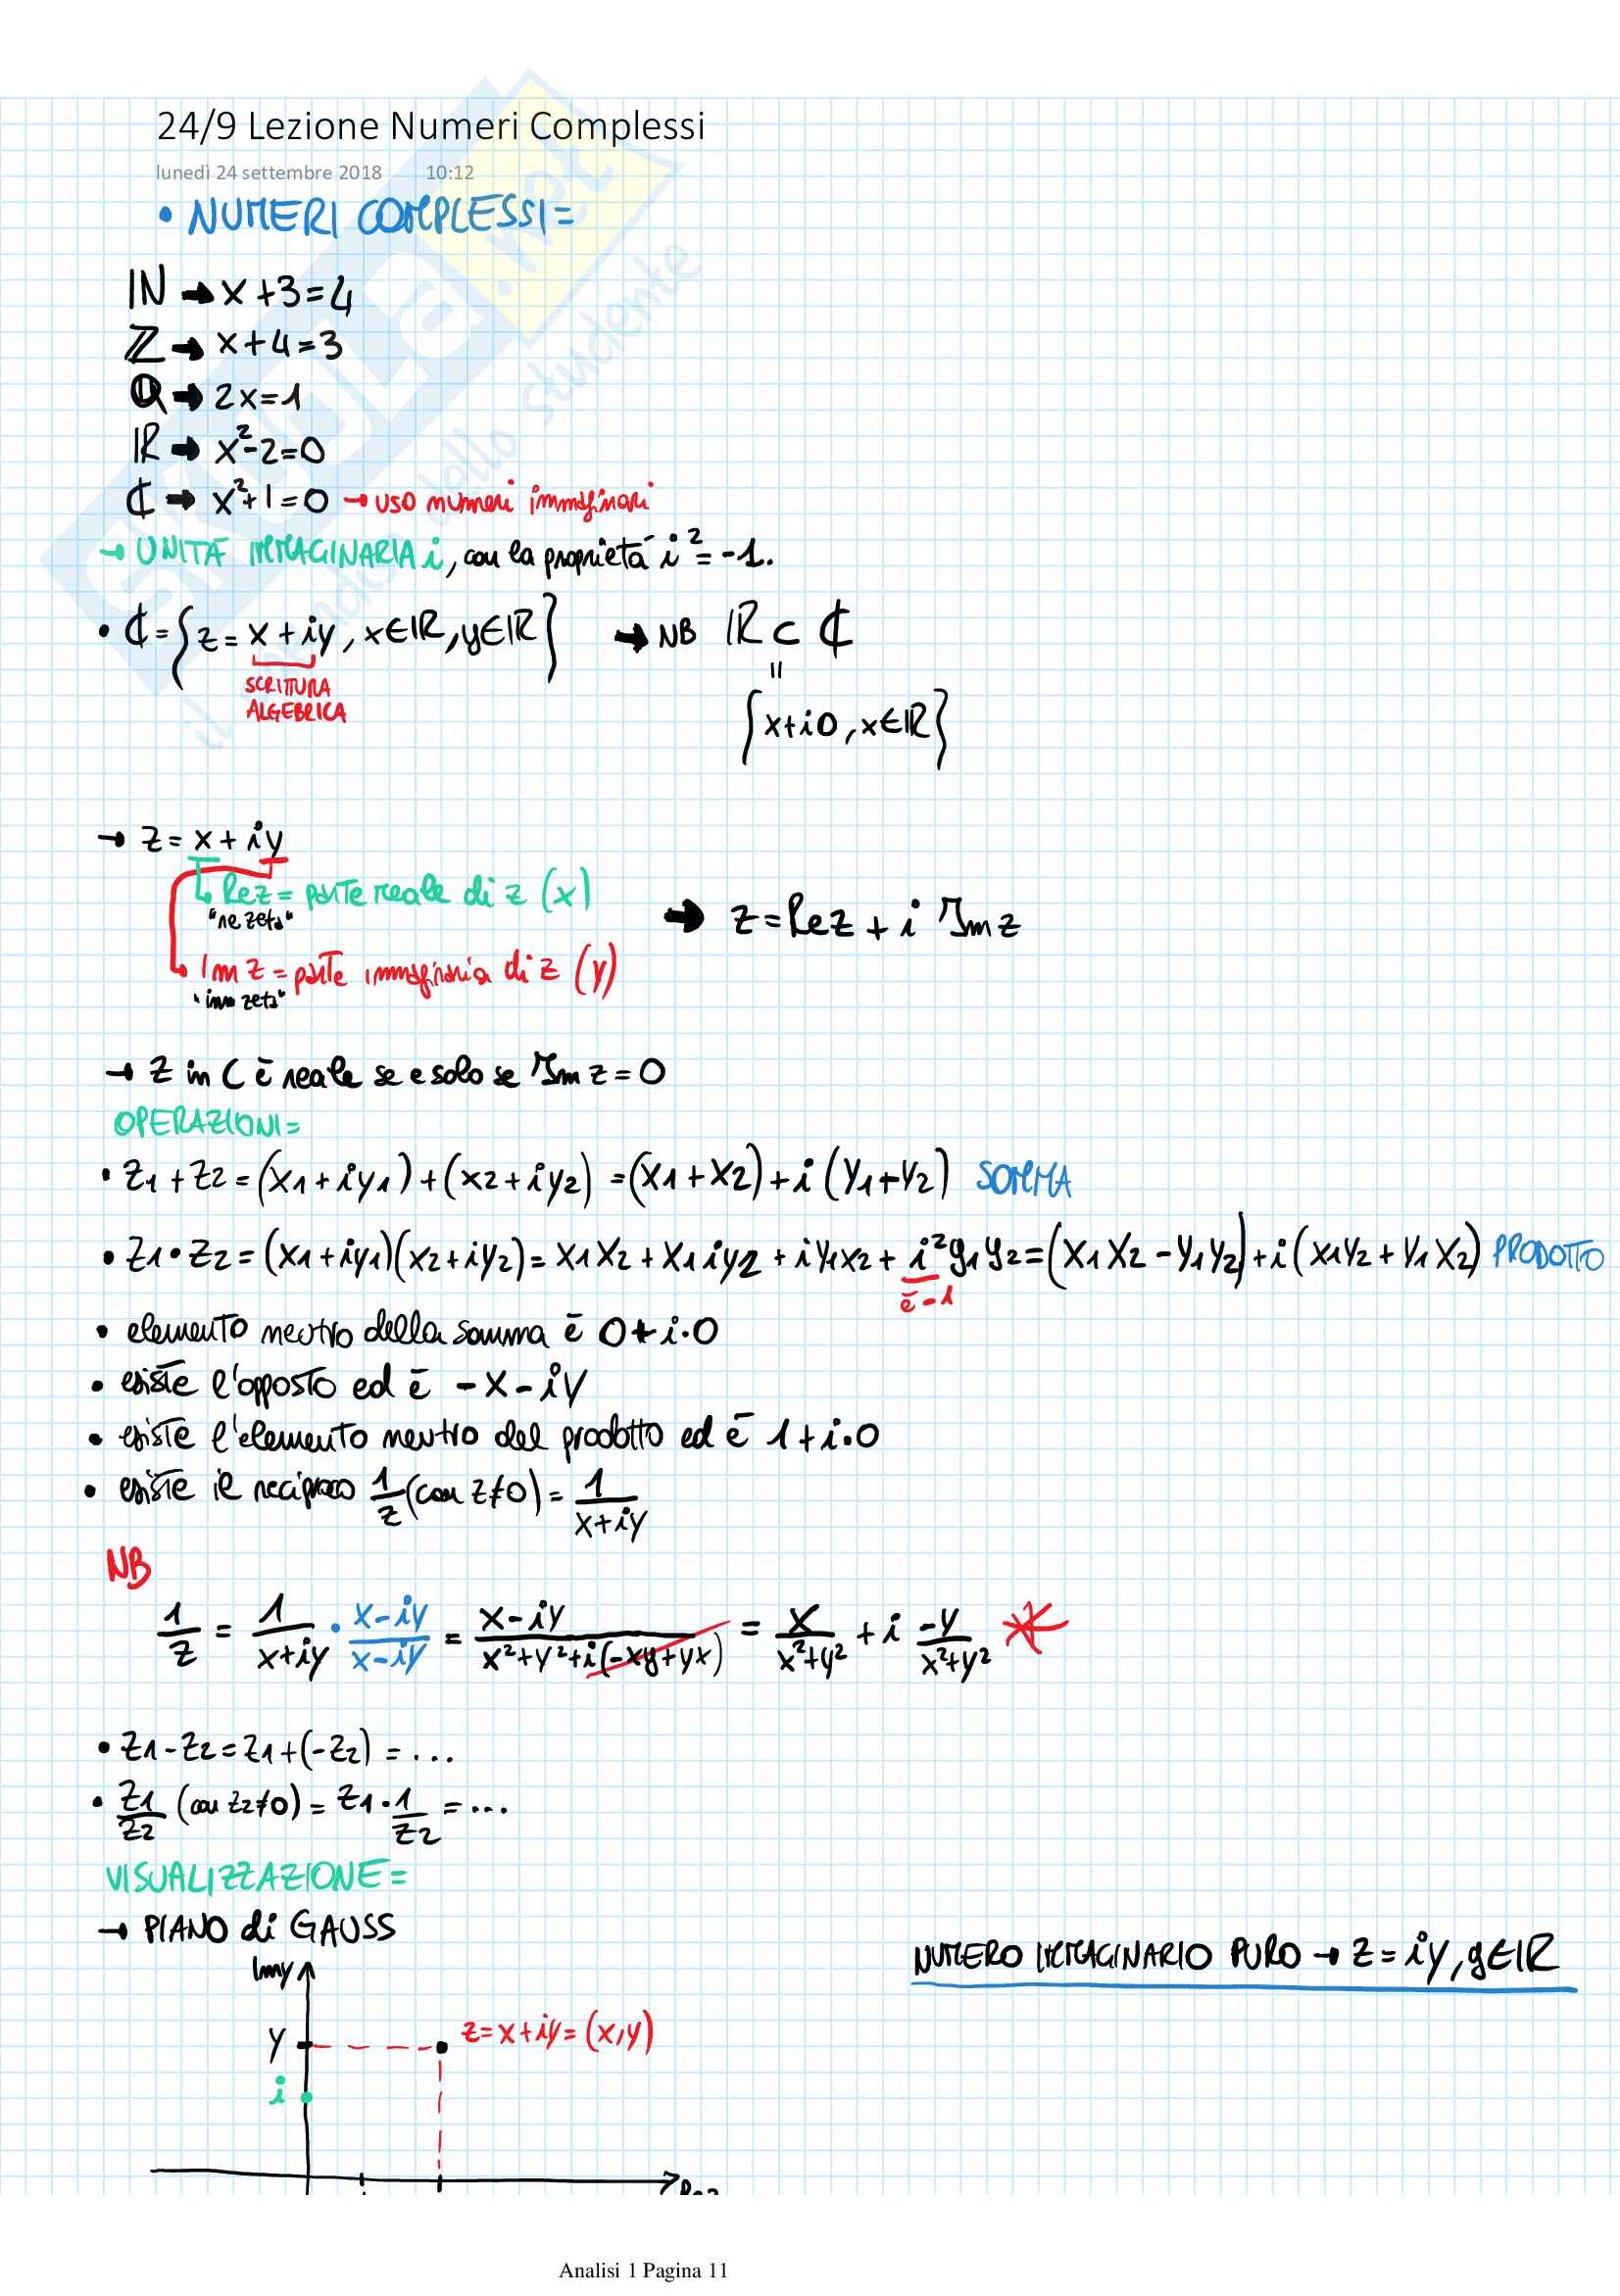 24/9 Lezione Numeri Complessi
lunedì 24 settembre 2018 10:12
• NUMERI COMPLESSI=
ℕ → x+3=4
ℤ → x+4=3
ℚ → 2x=1
ℝ → x²-2=0
ℂ → x²+1=0 → uso numeri immaginari
→ UNITÀ IMMAGINARIA i, con la proprietà i²=-1.
• ℂ={z=x+iy, x∈ℝ, y∈ℝ} → NB ℝ ⊂ ℂ
SCRITTURA
ALGEBRICA
=
{x+i0, x∈ℝ}
→ z=x+iy
Rez= parte reale di z (x)
"re zeta"
→ z=Rez+i Imz
Imz= parte immaginaria di z (y)
"imm zeta"
→ z in C è reale se e solo se Imz=0
OPERAZIONI=
• z1+z2=(x1+iy1)+(x2+iy2)=(x1+x2)+i(y1+y2) SOMMA
• z1•z2=(x1+iy1)(x2+iy2)=x1x2+x1iy2+iy1x2+i²y1y2=(x1x2-y1y2)+i(x1y2+y1x2) PRODOTTO
è -1
• elemento neutro della somma è 0+i•0
• esiste l'opposto ed è -x-iy
• esiste l'elemento neutro del prodotto ed è 1+i•0
• esiste il reciproco 1/z (con z≠0)=1/(x+iy)
NB
1/z = 1/(x+iy) • (x-iy)/(x-iy) = (x-iy)/(x²+y²+i(-xy+yx)) = x/(x²+y²) + i -y/(x²+y²) *
• z1-z2=z1+(-z2)=...
• z1/z2 (con z2≠0)=z1•1/z2=...
VISUALIZZAZIONE=
→ PIANO di GAUSS
NUMERO IMMAGINARIO PURO → z=iy, y∈ℝ
Imy
y
z=x+iy=(x,y)
i
Analisi 1 Pagina 11
SKUOLA.net
il paradiso dello studente